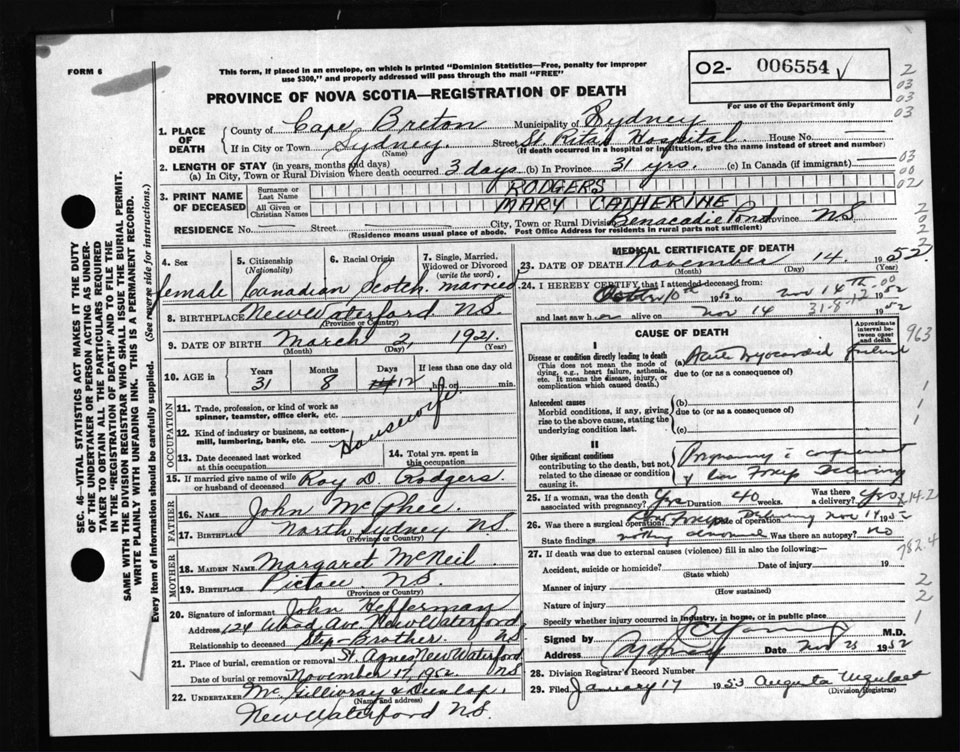 FORM 6
This form, if placed in an envelope, on which is printed "Dominion Statistics—Free, penalty for improper
use $300," and properly addressed will pass through the mail "FREE"
O2- 006554
For use of the Department only
PROVINCE OF NOVA SCOTIA—REGISTRATION OF DEATH
1. PLACE OF DEATH
County of Cape Breton Municipality of Sydney
If in City or Town Sydney. Street St. Rita's Hospital. House No. —
(Name) (If death occurred in a hospital or institution, give the name instead of street and number)
2. LENGTH OF STAY (in years, months and days)
(a) In City, Town or Rural Division where death occurred 3 days (b) In Province 31 yrs. (c) In Canada (if immigrant) —
3. PRINT NAME OF DECEASED
Surname or Last Name RODGERS
All Given or Christian Names MARY CATHERINE
RESIDENCE No. — Street — City, Town or Rural Division Benacadie Pond Province N.S.
(Residence means usual place of abode. Post Office Address for residents in rural parts not sufficient)
4. Sex female
5. Citizenship (Nationality) Canadian
6. Racial Origin Scotch
7. Single, Married, Widowed or Divorced (write the word) married
8. BIRTHPLACE New Waterford N.S.
(Province or Country)
9. DATE OF BIRTH March 2, 1921
(Month) (Day) (Year)
10. AGE in Years 31 Months 8 Days 12 If less than one day old hr. or min.
OCCUPATION
11. Trade, profession, or kind of work as spinner, teamster, office clerk, etc.
Housewife
12. Kind of industry or business, as cotton-mill, lumbering, bank, etc.
13. Date deceased last worked at this occupation
14. Total yrs. spent in this occupation
15. If married give name of wife or husband of deceased Roy D. Rodgers.
FATHER
16. Name John McPhee.
17. Birthplace North Sydney N.S.
(Province or Country)
MOTHER
18. MAIDEN NAME Margaret McNeil
19. BIRTHPLACE Pictou N.S.
(Province or Country)
20. Signature of informant John Hefferman
Address 124 Wood Ave. New Waterford
Relationship to deceased Step-Brother. N.S.
21. Place of burial, cremation or removal St. Agnes New Waterford
Date of burial or removal November 17, 1952 N.S.
22. UNDERTAKER McGillivray & Dunlop,
(Name and address)
New Waterford N.S.
MEDICAL CERTIFICATE OF DEATH
23. DATE OF DEATH November 14. 1952.
(Month) (Day) (Year)
24. I HEREBY CERTIFY that I attended deceased from:
10th 1952 to Nov 14th 1952
and last saw her alive on Nov 14 31-8-12 1952
CAUSE OF DEATH
Approximate interval between onset and death
I
Disease or condition directly leading to death
(This does not mean the mode of dying, e.g., heart failure, asthenia, etc. It means the disease, injury, or complication which caused death.)
(a) Acute Myocardial failure
due to (or as a consequence of)
Antecedent causes
Morbid conditions, if any, giving rise to the above cause, stating the underlying condition last.
(b)
due to (or as a consequence of)
(c)
II
Other significant conditions
contributing to the death, but not related to the disease or condition causing it.
Pregnancy
Low Forcep Delivery
25. If a woman, was the death associated with pregnancy? Yes Duration 40 weeks. Was there a delivery? Yes
26. Was there a surgical operation? Yes Forceps Date of operation Delivery Nov 14 1952
State findings nothing abnormal Was there an autopsy? No
27. If death was due to external causes (violence) fill in also the following:—
Accident, suicide or homicide? Date of injury 19
(State which)
Manner of injury
(How sustained)
Nature of injury
Specify whether injury occurred in industry, in home, or in public place
Signed by M.D.
Address Sydney Date Nov 25 1952
28. Division Registrar's Record Number
29. Filed January 17 1953 Augusta
(Division Registrar)
2
03
03
03
03
00
02
2
0
2
2
963
1
1
1
782.4
2
2
1
SEC. 46—VITAL STATISTICS ACT MAKES IT THE DUTY
OF THE UNDERTAKER OR PERSON ACTING AS UNDER-
TAKER TO OBTAIN ALL THE PARTICULARS REQUIRED
IN THE "REGISTRATION OF DEATH" AND TO FILE THE
SAME WITH THE DIVISION REGISTRAR WHO SHALL ISSUE THE BURIAL PERMIT.
WRITE PLAINLY WITH UNFADING INK. THIS IS A PERMANENT RECORD.
Every item of information should be carefully supplied. (See reverse side for instructions.)